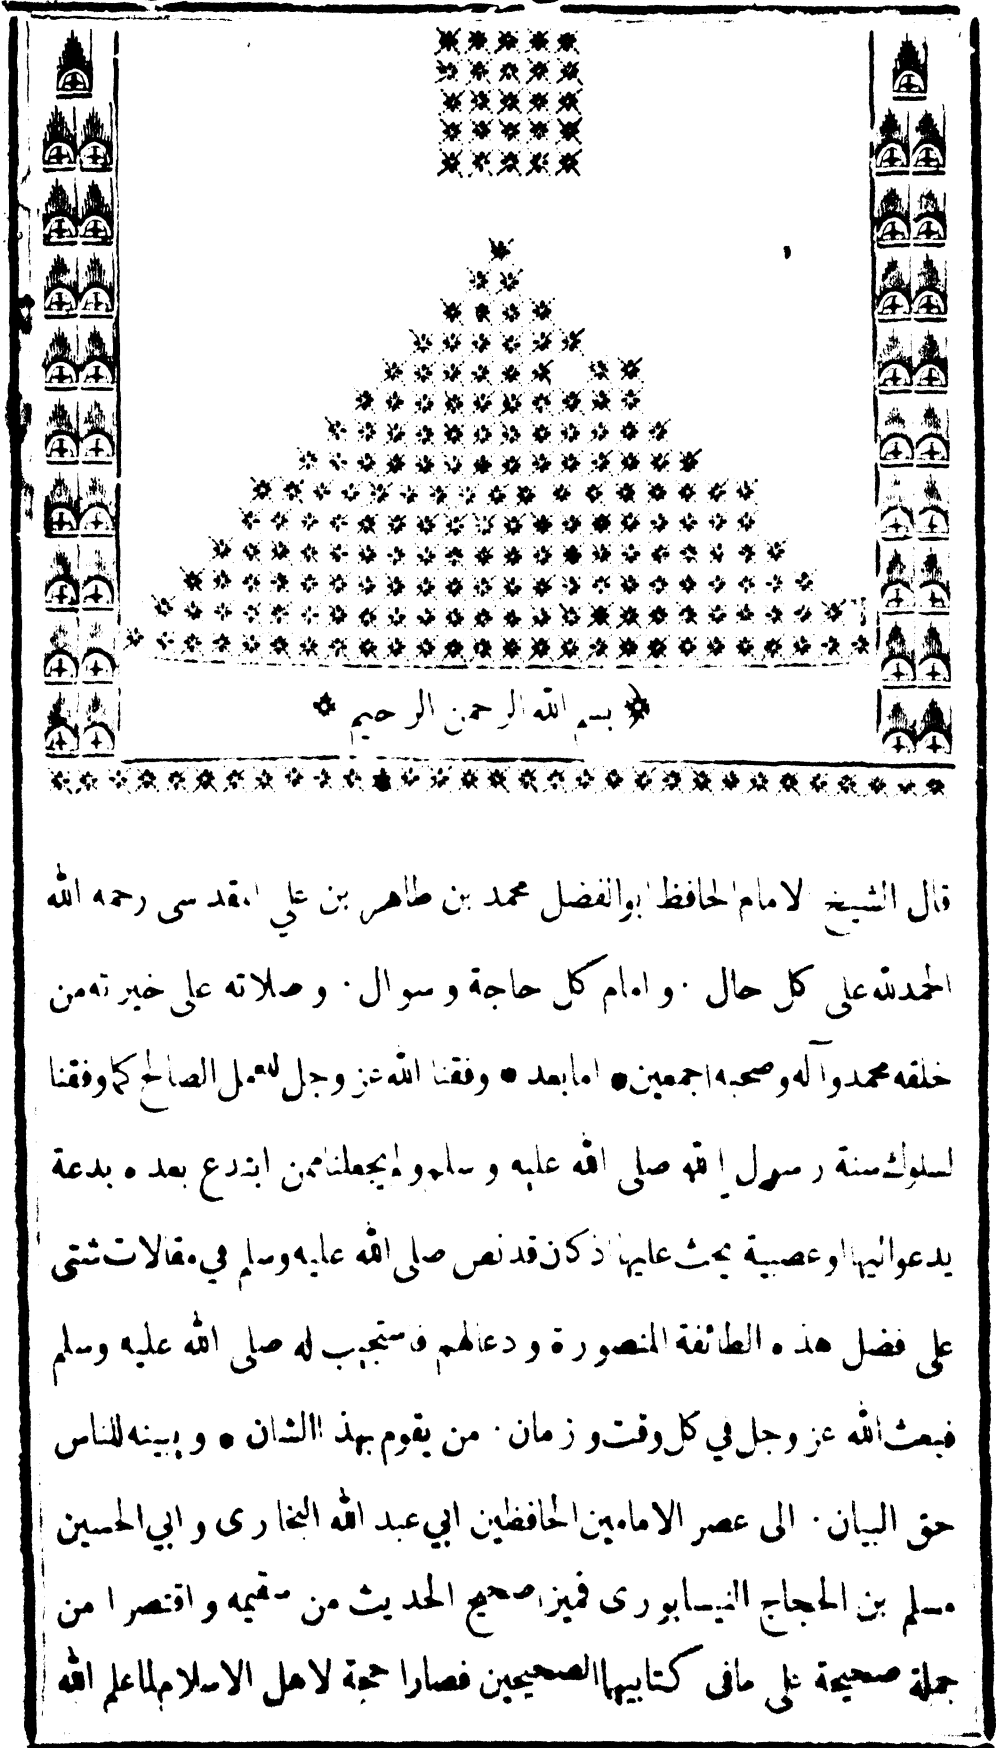 بسم الله الرحمن الرحيم
قال الشيخ الامام الحافظ ابوالفضل محمد بن طاهر بن علي المقدسى رحمه الله
الحمدلله على كل حال . و امام كل حاجة و سوال . و صلاته على خيرته من
خلقه محمد وآله وصحبه اجمعين • اما بعد • وفقنا الله عز وجل للعمل الصالح كما وفقنا
لسلوك سنة رسول الله صلى الله عليه و سلم و لم يجعلنا ممن ابتدع بعده بدعة
يدعوا اليها او عصبية يحث عليها اذ كان قد نص صلى الله عليه وسلم في مقالات شتى
على فضل هذه الطائفة المنصورة و دعا لهم فاستجيب له صلى الله عليه وسلم
فبعث الله عز وجل في كل وقت و زمان . من يقوم بهذا الشان • و يبينه للناس
حق البيان . الى عصر الامامين الحافظين ابي عبد الله البخارى و ابي الحسين
مسلم بن الحجاج النيسابورى فميزا صحيح الحديث من سقيمه و اقتصرا من
جملة صحيحة على مافى كتابيهما الصحيحين فصارا حجة لاهل الاسلام لما علم الله